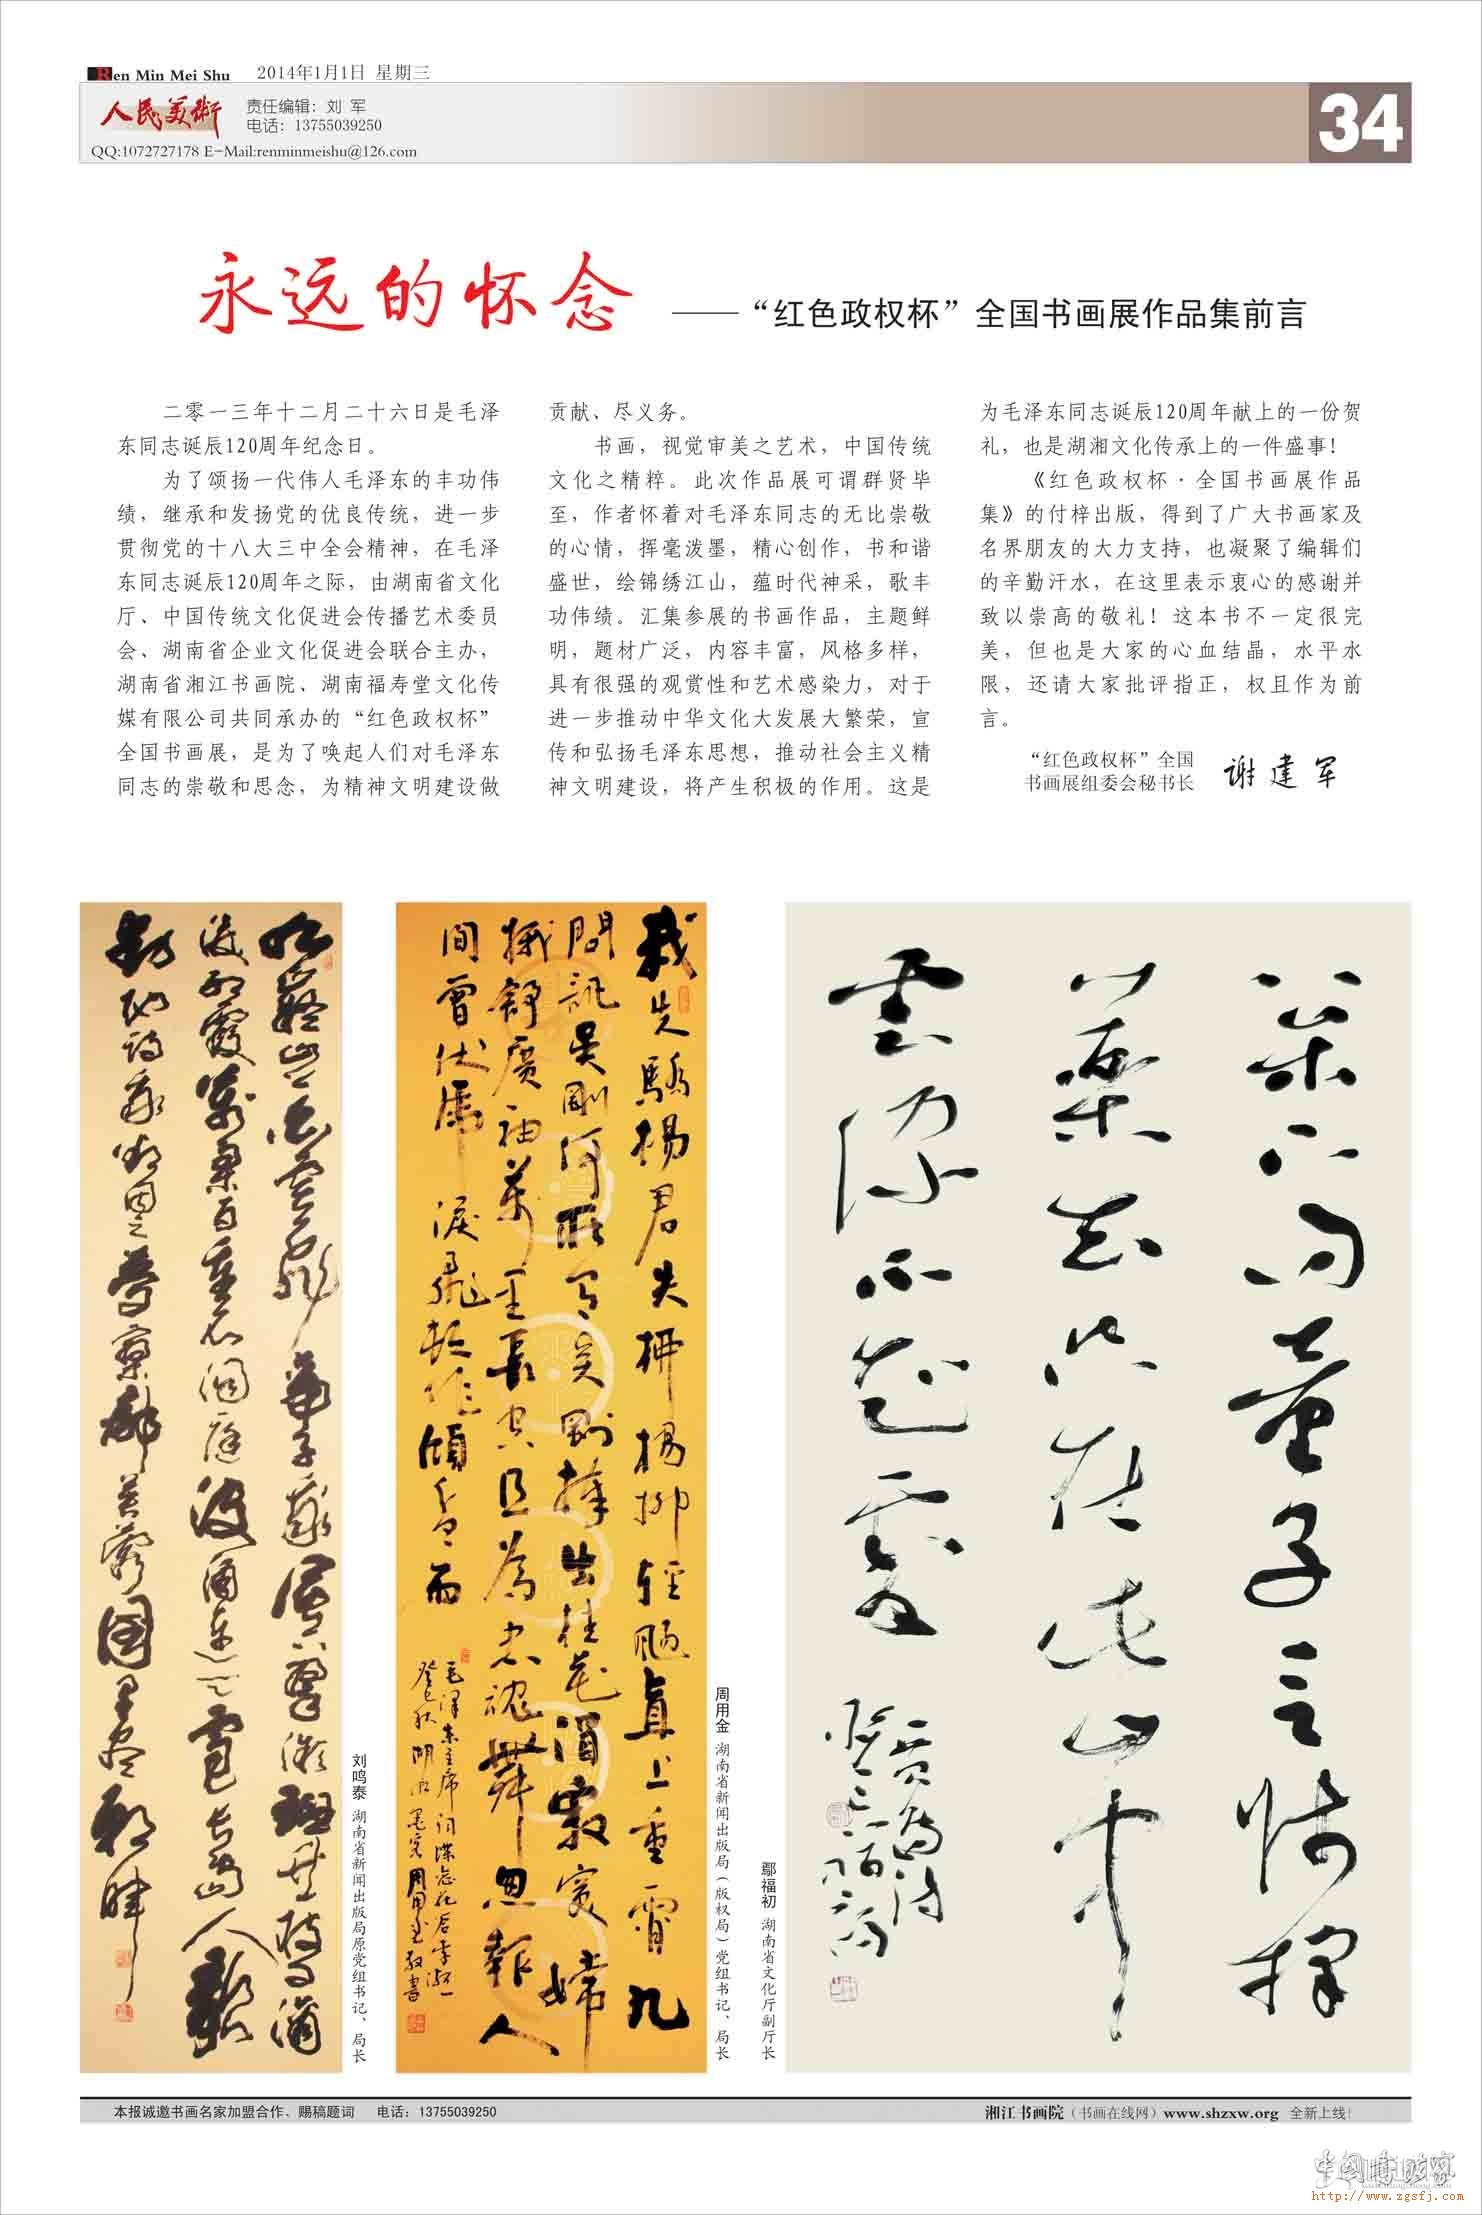 Ren Min Mei Shu 2014年1月1日 星期三
人民美術
责任编辑：刘 军
电话：13755039250
QQ:1072727178 E-Mail:renminmeishu@126.com
34
永远的怀念
——“红色政权杯”全国书画展作品集前言
二零一三年十二月二十六日是毛泽
东同志诞辰120周年纪念日。
为了颂扬一代伟人毛泽东的丰功伟
绩，继承和发扬党的优良传统，进一步
贯彻党的十八大三中全会精神，在毛泽
东同志诞辰120周年之际，由湖南省文化
厅、中国传统文化促进会传播艺术委员
会、湖南省企业文化促进会联合主办，
湖南省湘江书画院、湖南福寿堂文化传
媒有限公司共同承办的“红色政权杯”
全国书画展，是为了唤起人们对毛泽东
同志的崇敬和思念，为精神文明建设做
贡献、尽义务。
书画，视觉审美之艺术，中国传统
文化之精粹。此次作品展可谓群贤毕
至，作者怀着对毛泽东同志的无比崇敬
的心情，挥毫泼墨，精心创作，书和谐
盛世，绘锦绣江山，蕴时代神采，歌丰
功伟绩。汇集参展的书画作品，主题鲜
明，题材广泛，内容丰富，风格多样，
具有很强的观赏性和艺术感染力，对于
进一步推动中华文化大发展大繁荣，宣
传和弘扬毛泽东思想，推动社会主义精
神文明建设，将产生积极的作用。这是
为毛泽东同志诞辰120周年献上的一份贺
礼，也是湖湘文化传承上的一件盛事！
《红色政权杯·全国书画展作品
集》的付梓出版，得到了广大书画家及
名界朋友的大力支持，也凝聚了编辑们
的辛勤汗水，在这里表示衷心的感谢并
致以崇高的敬礼！这本书不一定很完
美，但也是大家的心血结晶，水平水
限，还请大家批评指正，权且作为前
言。
“红色政权杯”全国
书画展组委会秘书长
谢建军
九嶷山上白雲飛帝子乘風下翠微斑竹一枝千滴
淚紅霞萬朵百重衣洞庭波涌連天雪長島人歌
動地詩我欲因之夢寥廓芙蓉國里盡朝暉
刘鸣泰 湖南省新闻出版局原党组书记、局长
我失驕楊君失柳楊柳輕颺直上重霄九
問訊吳剛何所有吳剛捧出桂花酒寂寞嫦
娥舒廣袖萬里長空且為忠魂舞忽報人
間曾伏虎淚飛頓作傾盆雨
毛澤東主席詞蝶戀花答李淑一
周用金 湖南省新闻出版局（版权局）党组书记、局长
松下問童子言師採
藥去只在此山中
雲深不知處
賈島詩
鄢福初 湖南省文化厅副厅长
本报诚邀书画名家加盟合作、赐稿题词 电话：13755039250
湘江书画院（书画在线网）www.shzxw.org 全新上线！
http://www.zgsfj.com